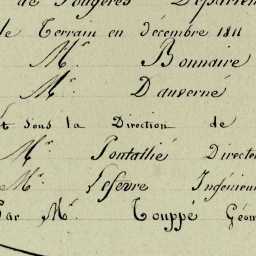 de Fougères Départem
le Terrain en décembre 1811
Mr. Bonnaire
Mr. Dauverné
t sous la Direction de
Mr. Pontallié Directe
Mr. Lefevre Ingénieu
Par Mr. Couppé Géom